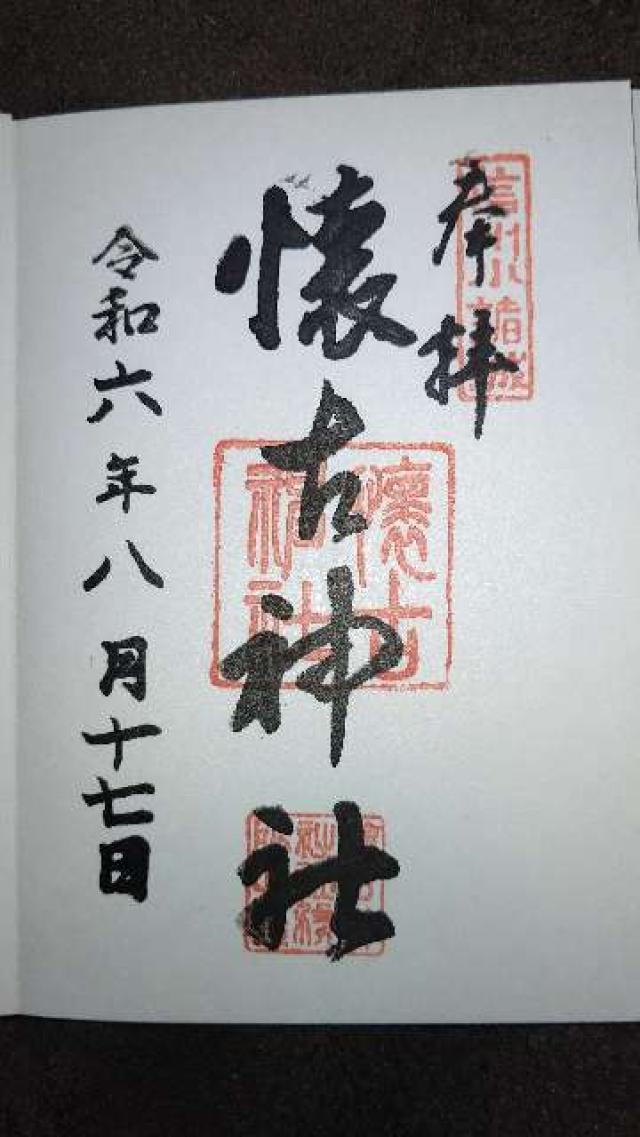 奉拝
信州小諸城
懐古神社
懐古神社
令和六年八月十七日